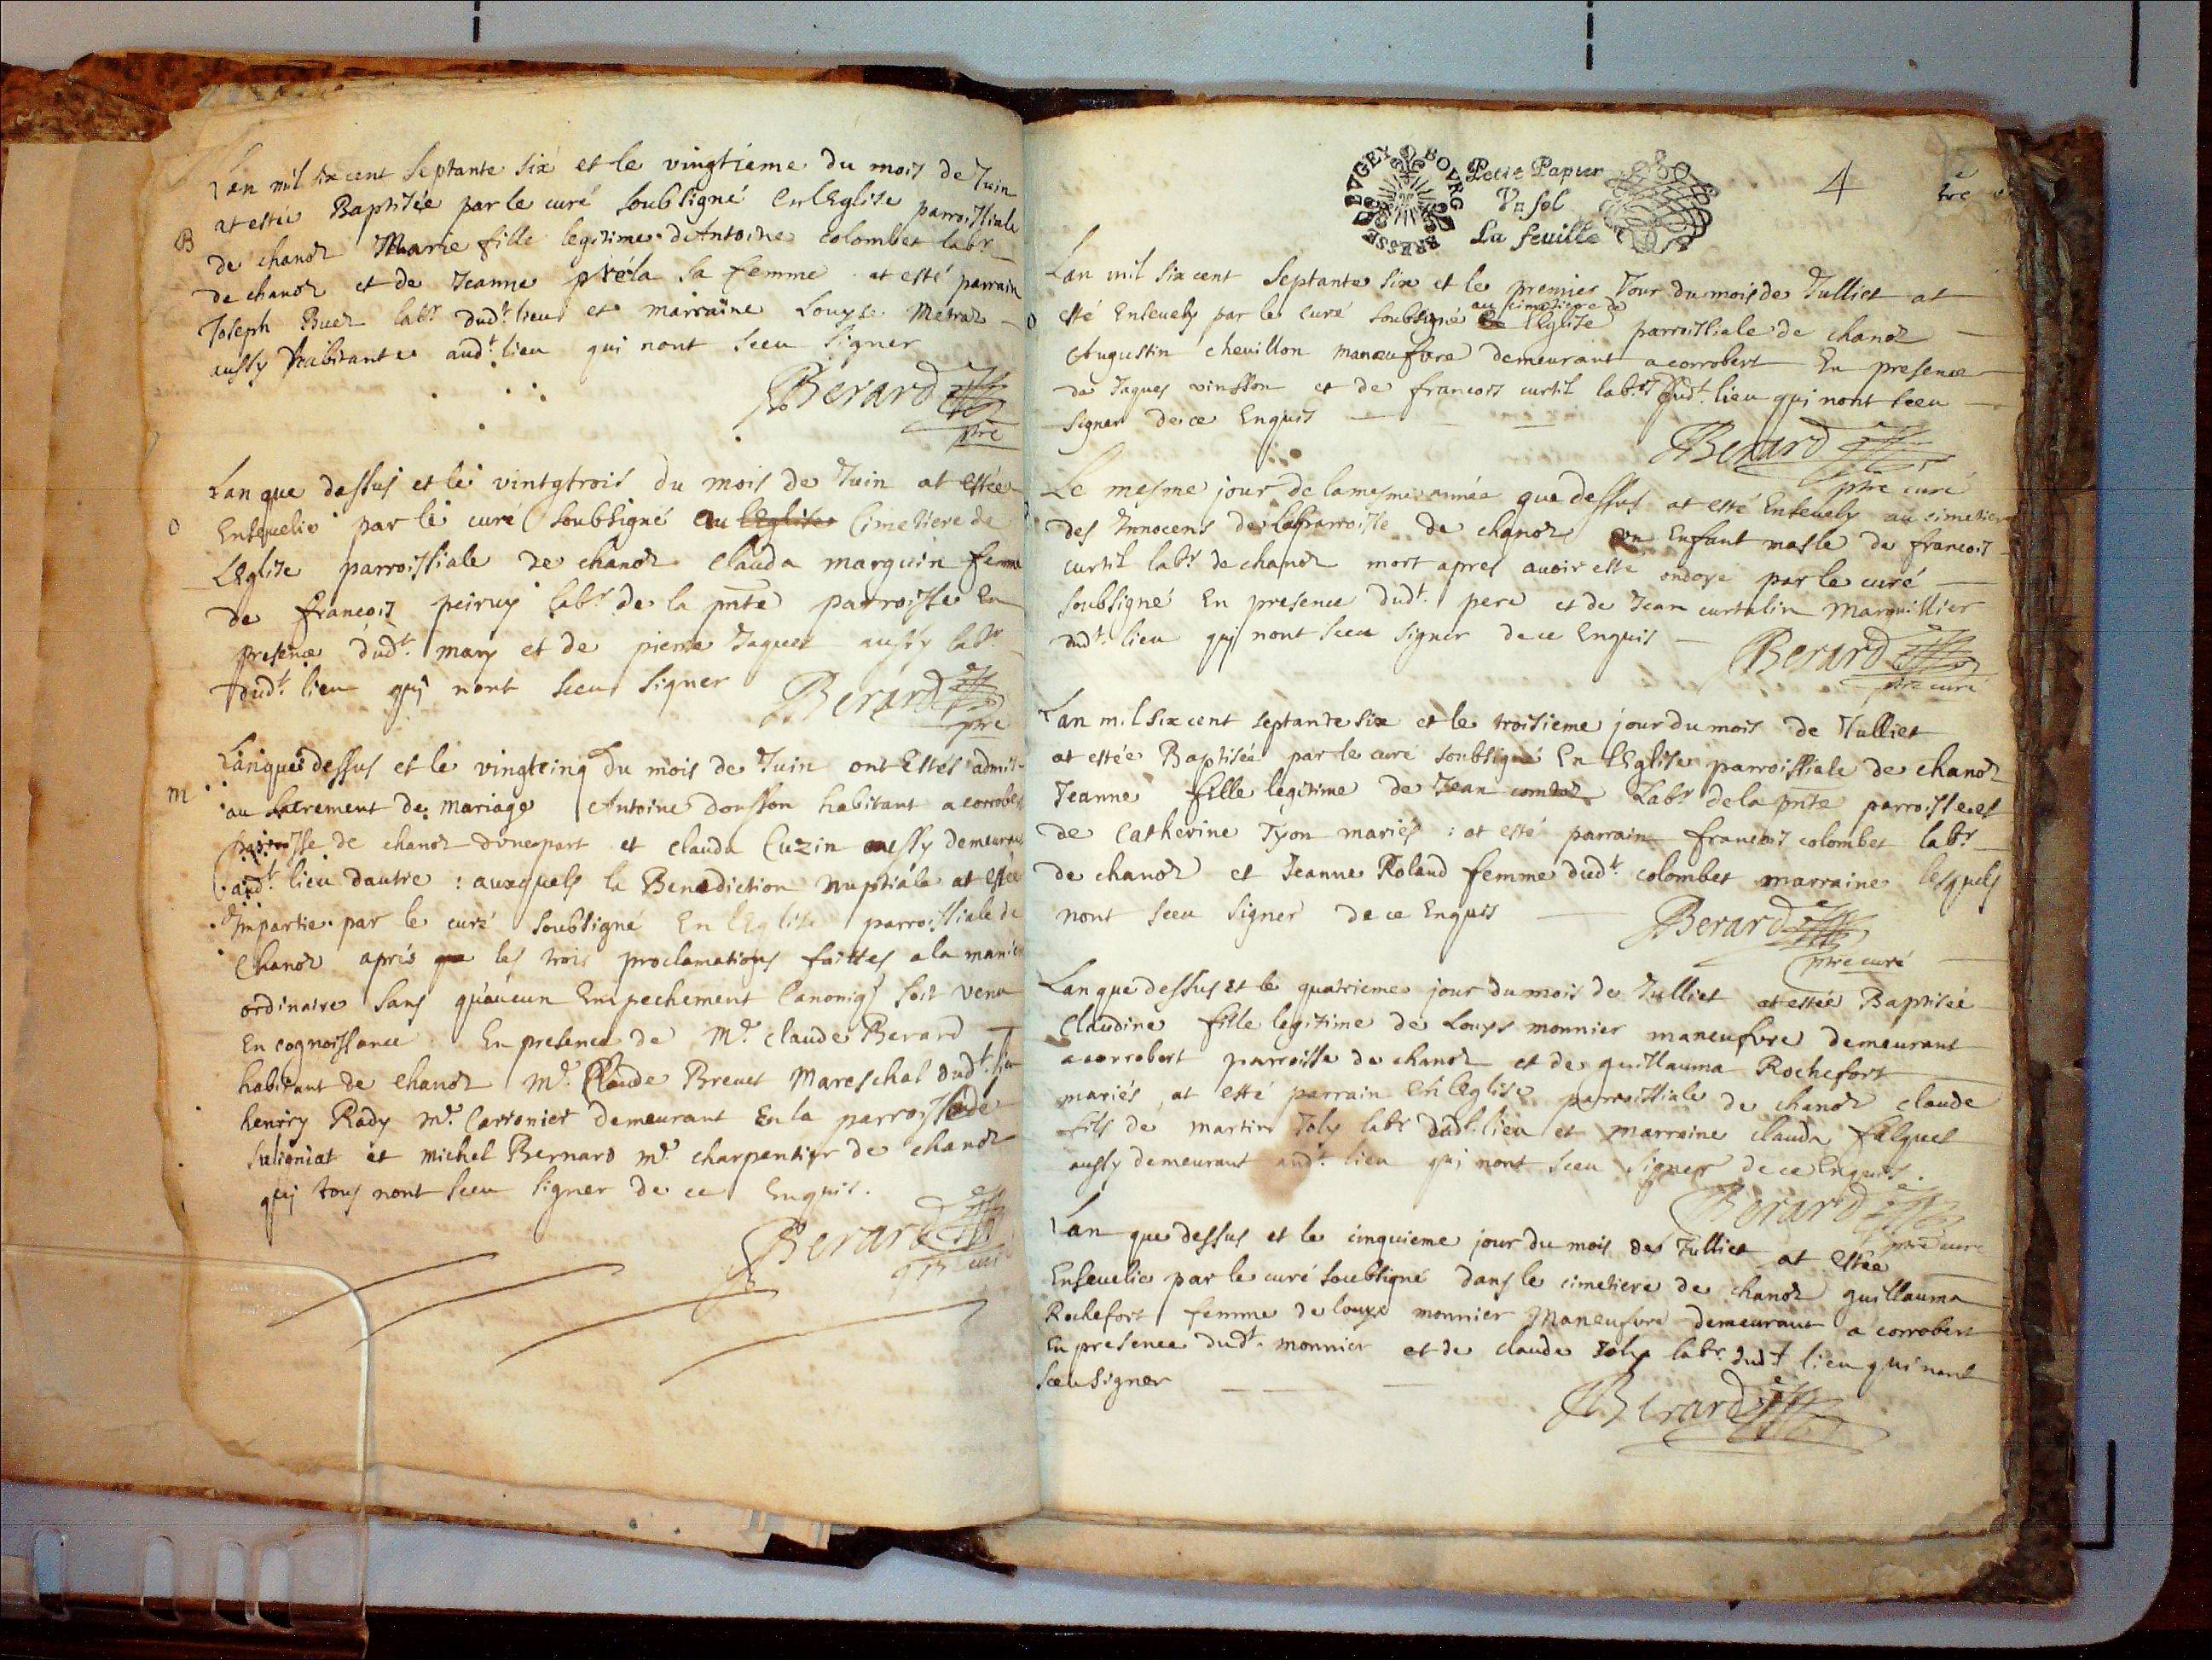 Lan mil six cent Septante six et le vingtieme du mois de Juin
at estée Baptisée par le curé soubsigné en lEglise parroissiale
B
de chanoz Marie fille legitime de Antoine colombet labr
de chanoz et de Jeanne préla sa femme at esté parrain
Joseph Buez labr dudt lieu et marraine Louyse Metraz
aussy habitante audt lieu qui nont sceu signer
Berard
ptre
Lan que dessus et le vingttrois du mois de Juin at estée
O
Ensevelie par le curé soubsigné au lEglise Cimetiere de
LEglise parroissiale de chanoz Clauda marguin femme
de francois labr de la pnte parroisse En
presence dudt mary et de pierre Jaquet aussy labr
dudt lieu qui nont sceu signer
Berard
ptre
Lan que dessus et le vingtcinq du mois de Juin ont Estés admis
M
au sacrement de mariage Antoine donsson habitant a corrobert
parroisse de chanoz dunepart et clauda Cuzin aussy demeurant
audt lieu dautre : auxquels la Benediction nuptiale at estée
Impartie par le curé soubsigné En lEglise parroissiale de
Chanoz aprés les trois proclamations faittes a la maniere
ordinaire sans quaucun Empechement Canoniq soit venu
En cognoissance En presence de Me claude Berard
habitant de chanoz Me Claude Brevet Mareschal dudt lieu
henrry Rady Me Carronier demeurant En la parroisse de
Suligniat et michel Bernard me charpentier de chanoz
qui tous nont sceu signer de ce Enquis.
Berard
curé
BOVRG BRESSE BVGEY
Petit Papier
Vn sol
La feuille
4
Lan mil six cent Septante six et le premier Jour du mois de Julliet at
au cimetiere de
O
esté Ensevely par le curé soubsigné lEglise parroissiale de chanoz
Augustin chevillon manœufvre demeurant a corrobert En presence
de Jaques vinsson et de francois curtil labrs dudt lieu qui nont sceu
signer de ce Enquis
Berard
ptre curé
Le mesme jour de la mesme année que dessus at esté Ensevely au simetiere
des Innocens de la parroisse de chanoz un Enfant masle de francois
curtil labr de chanoz mort apres avoir esté ondoyé par le curé
soubsigné En presence dudt pere et de Jean curtalin Marguillier
dudt lieu qui nont sceu signer de ce Enquis
Berard
ptre curé
Lan mil six cent septante six et le troisieme jour du mois de Julliet
at estée Baptisée par le curé soubsigné En lEglise parroissiale de chanoz
Jeanne fille legitime de Jean Labr de la pnte parroisse et
de Catherine Tyon mariés : at esté parrain francois colombet labr
de chanoz et Jeanne Roland femme dudt colombet marraine lesquels
nont sceu signer de ce Enquis
Berard
ptre curé
Lan que dessus et le quatrieme jour du mois de Julliet at estée Baptisée
Claudine fille legitime de Louys monnier maneufvre demeurant
a corrobert parroisse de chanoz et de guillauma Rochefort
mariés, at esté parrain En lEglise parroissiale de chanoz claude
fils de martin Joly labr dudt lieu et marraine clauda falquet
aussy demeurant audt lieu qui nont sceu signer de ce Enquis.
Berard
ptre curé
Lan que dessus et le cinquieme jour du mois de Julliet at estée
Ensevelie par le curé soubsigné dans le cimetiere de chanoz guillauma
Rochefort femme de louys monnier Maneufvre demeurant a corrobert
En presence dudt monnier et de claude Joly labr dudt lieu qui nont
sceu signer
Berard